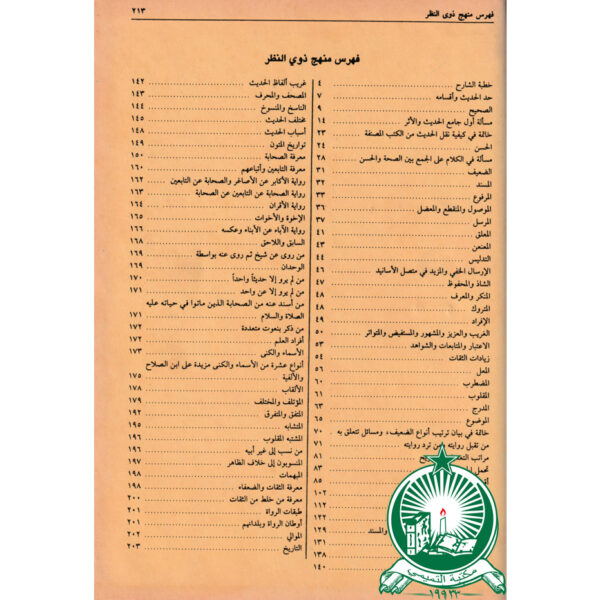 فهرس منهج ذوي النظر
٢١٣
فهرس منهج ذوي النظر
خطبة الشارح ٤
حد الحديث وأقسامه ٧
الصحيح ٩
مسألة أول جامع الحديث والأثر ١٤
خاتمة في كيفية نقل الحديث من الكتب المصنفة ٢٣
الحسن ٢٤
مسألة في الكلام على الجمع بين الصحة والحسن ٢٨
الضعيف ٣١
المسند ٣٢
المرفوع ٣٣
الموصول والمنقطع والمعضل ٣٦
المرسل ٣٧
المعلق ٤١
المعنعن ٤٣
التدليس ٤٤
الإرسال الخفي والمزيد في متصل الأسانيد ٤٦
الشاذ والمحفوظ ٤٧
المنكر والمعرف ٤٨
المتروك ٤٨
الإفراد ٤٩
الغريب والعزيز والمشهور والمستفيض والمتواتر ٥٠
الاعتبار والمتابعات والشواهد ٥٣
زيادات الثقات ٥٤
المعل ٥٦
المضطرب ٦٠
المقلوب ٦١
المدرج ٦٣
الموضوع ٦٥
خاتمة في بيان ترتيب أنواع الضعيف، ومسائل تتعلق به ٧٠
من تقبل روايته ومن ترد روايته ٧١
مراتب ٨١
تحمل ٨٣
٨٥
١٠٢
١١٢
١٢٢
والمسند ١٢٩
١٣١
١٣٨
١٤٠
غريب ألفاظ الحديث ١٤٢
المصحف والمحرف ١٤٣
الناسخ والمنسوخ ١٤٤
مختلف الحديث ١٤٥
أسباب الحديث ١٤٨
تواريخ المتون ١٤٩
معرفة الصحابة ١٥٠
معرفة التابعين وأتباعهم ١٦٠
رواية الأكابر عن الأصاغر والصحابة عن التابعين ١٦٢
رواية الصحابة عن التابعين عن الصحابة ١٦٣
رواية الأقران ١٦٤
الإخوة والأخوات ١٦٥
رواية الآباء عن الأبناء وعكسه ١٦٦
السابق واللاحق ١٦٨
من روى عن شيخ ثم روى عنه بواسطة ١٦٩
الوحدان ١٦٩
من لم يرو إلا حديثاً واحداً ١٧٠
من لم يرو إلا عن واحد ١٧١
من أسند عنه من الصحابة الذين ماتوا في حياته عليه
الصلاة والسلام ١٧١
من ذكر بنعوت متعددة ١٧٢
أفراد العلم ١٧٢
الأسماء والكنى ١٧٣
أنواع عشرة من الأسماء والكنى مزيدة على ابن الصلاح
والألفية ١٧٥
الألقاب ١٧٨
المؤتلف والمختلف ١٧٩
المتفق والمتفرق ١٩٢
المتشابه ١٩٥
المشتبه المقلوب ١٩٦
من نسب إلى غير أبيه ١٩٦
المنسوبون إلى خلاف الظاهر ١٩٧
المبهمات ١٩٨
معرفة الثقات والضعفاء ١٩٨
معرفة من خلط من الثقات ٢٠٠
طبقات الرواة ٢٠١
أوطان الرواة وبلدانهم ٢٠١
الموالي ٢٠٢
التاريخ ٢٠٣
مكتبة التميمي